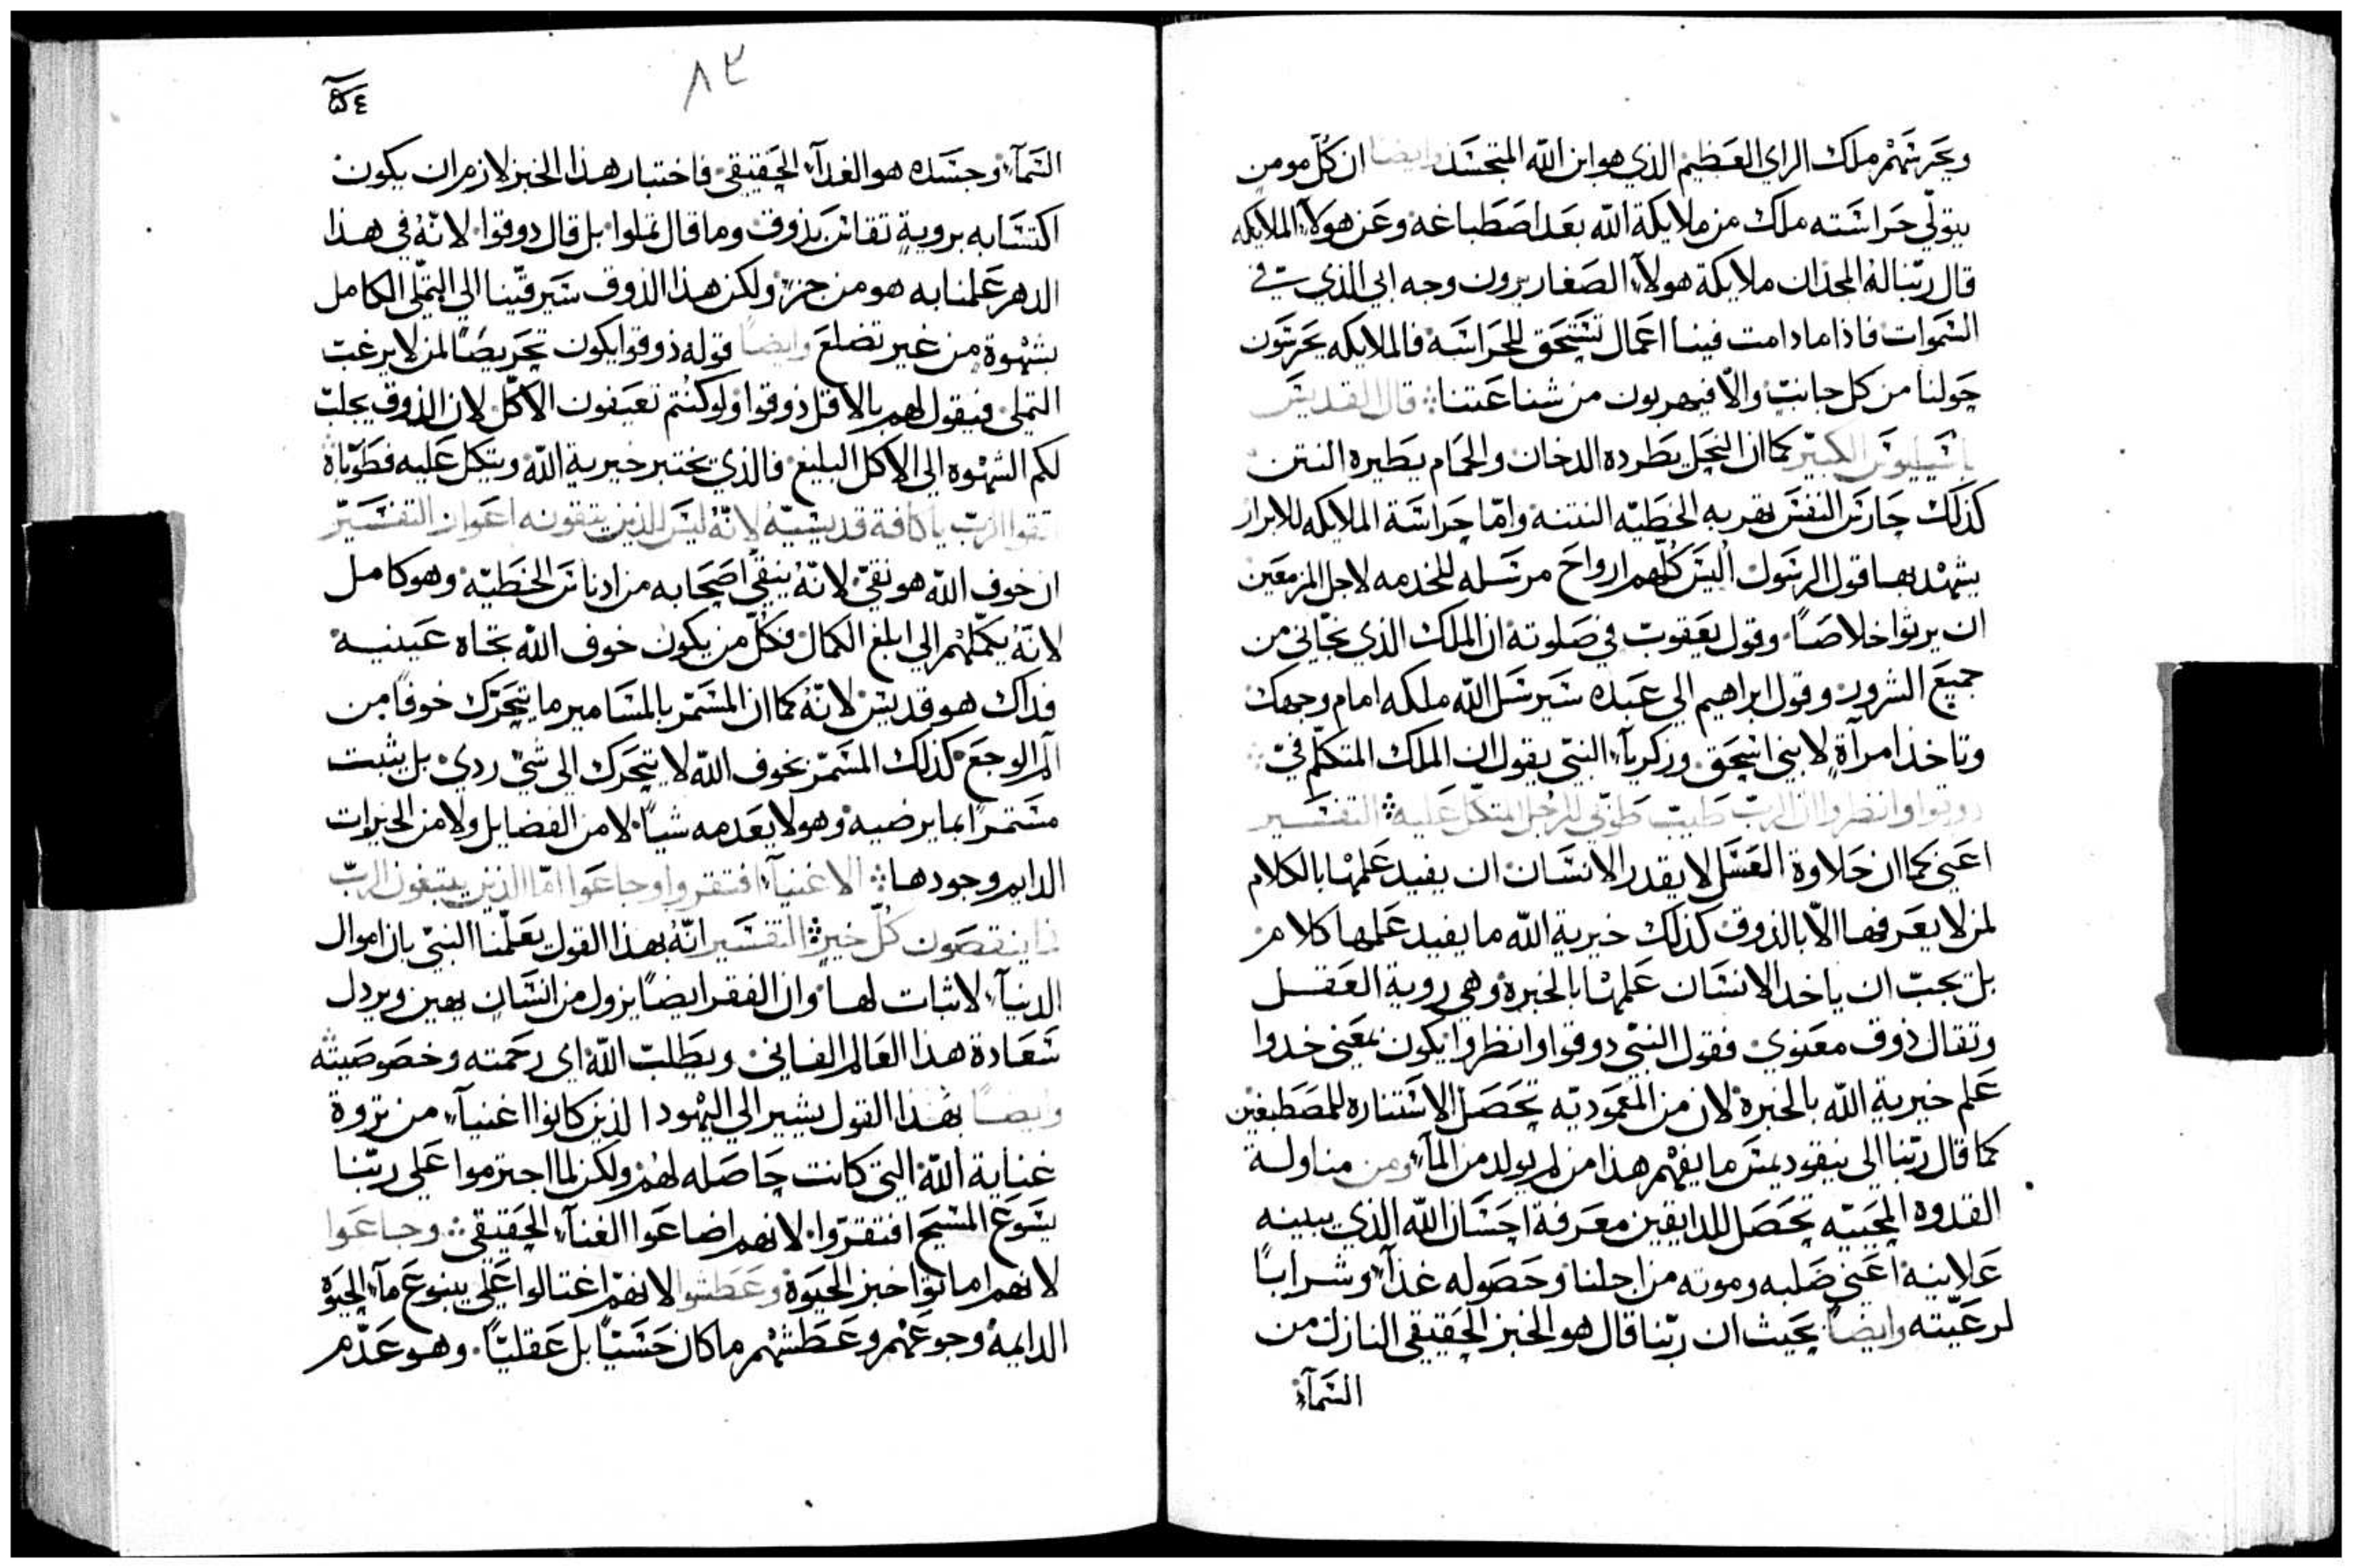 ويحرسهم ملك الراي العظيم الذي هو ابن الله المتجسد وايضا ان كل مومن
يتولي حراسته ملك من ملايكة الله بعد اصطباغه وعن هولآء الملايكه
قال ربنا له المجد ان ملايكة هولآء الصغار يرون وجه ابي الذي في
السموات فاذا ما دامت فينا اعمال تستحق للحراسه فالملايكه يحرسون
حولنا من كل جانب والا فيهربون من شناعتنا قال القديس
باسيليوس الكبير كما ان النحل يطرده الدخان والحمام يطيره النتن
كذلك حارس النفس يهربه الخطيه النتنه واما حراسة الملايكه للابرار
يشهد بها قول الرسول اليس كلهم ارواح مرسله للخدمه لاجل المزمعين
ان يرثوا خلاصًا وقول يعقوب في صلوته ان الملك الذي نجاني من
جميع الشرور وقول ابراهيم الي عبده سيرسل الله ملكه امام وجهك
وتاخذ امرآة لابني اسحق وزكريآء النبي يقول ان الملك المتكلم في
دوقوا وانظروا ان الرب طيب طوبي للرجل المتكل عليه التفسير
اعني كما ان حلاوة العسل لا يقدر الانسان ان يفيد علمها بالكلام
لمن لا يعرفها الا بالذوق كذلك خيرية الله ما يفيد علمها كلام
بل يجب ان ياخد الانسان علمها بالخبره وهي روية العقل
وتقال ذوق معنوي فقول النبي دوقوا وانظروا يكون بمعني خدوا
علم خيرية الله بالخبره لان من المعموديه تحصل الاستناره للمصطبغين
كما قال ربنا الي نيقوديمس ما يفهم هذا من لم يولد من المآء ومن مناولة
القدوه المحييه تحصل للدايقين معرفة احسان الله الذي يبينه
علانية اعني صلبه وموته من اجلنا وحصوله غذآء وشرابًا
لرعيته وايضًا بحيث ان ربنا قال هو الخبز الحقيقي النازل من
السمآء
٨٣
٥٤
السمآء وجسده هو الغدآء الحقيقي فاختبار هذا الخبز لازم ان يكون
اكتسابه بروية تقاس بذوق وما قال تملوا بل قال دوقوا لانه في هذا
الدهر علمنا به هو من جزء ولكن هذا الذوق سيرقينا الي التملي الكامل
بشهوة من غير تضلع وايضًا قوله ذوقوا يكون تحريضًا لمن لا يرغب
التملي فيقول لهم بالاقل ذوقوا ولو كنتم تعيفون الاكل لان الذوق يجلب
لكم الشهوه الي الاكل البليغ فالذي يختبر خيرية الله ويتكل عليه فطوباه
اتقوا الرب يا كافة قديسيه لانه ليس للذين يتقونه اعواز التفسير
ان خوف الله هو نقي لانه ينقي اصحابه من ادناس الخطيه وهو كامل
لانه يكملهم الي ابلغ الكمال فكل من يكون خوف الله تجاه عينيه
فداك هو قديس لانه كما ان المسمر بالمسامير ما يتحرك خوفًا من
الم الوجع كذلك المسمر بخوف الله لا يتحرك الي شي ردي بل يثبت
مستمرًا بما يرضيه وهو لا يعدمه شيا لا من الفضايل ولا من الخيرات
الدايم وجودها الاغنيآء افتقروا وجاعوا اما الذين يبتغون الرب
فما ينقصون كل خير التفسير انه بهذا القول يعلمنا النبي بان اموال
الدنيآء لا ثبات لها وان الفقر ايضًا يزول من انسان يهين ويردل
سعادة هذا العالم الفاني ويطلب الله اي رحمته وخصوصيته
وايضًا بهذا القول يشير الي اليهود الذين كانوا اغنيآء من ثروة
عناية الله التي كانت حاصله لهم ولكن لما اجترموا علي ربنا
يسوع المسيح افتقروا لانهم اضاعوا الغنآء الحقيقي وجاعوا
لانهم اماتوا خبز الحيوة وعطشوا لانهم اغتالوا علي ينبوع مآء الحيوة
الدايمه وجوعهم وعطشهم ما كان حسيًا بل عقليًا وهو عدم